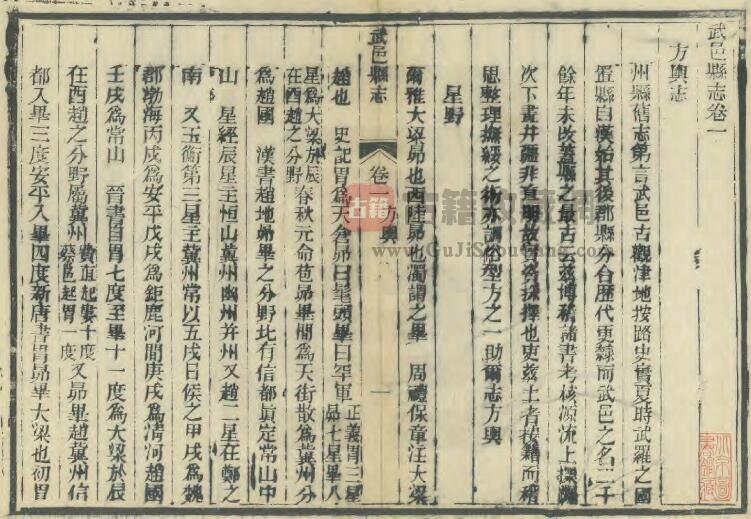 武邑縣志卷一
方輿志
州縣舊志第言武邑古觀津地按路史實夏時武羅之國
置縣自漢始其後郡縣分合歷代更隸而武邑之名二千
餘年未改蓋縣之最古云兹博稽諸書考核源流上探躔
次下畫井疆非直明故實為採擇也吏兹土者按籍而稽
思整理撫綏之術亦訓俗型方之一助爾志方輿
星野
爾雅大梁昴也西陸昴也濁謂之畢 周禮保章注大梁
武邑縣志
卷一 方輿
一
趙也 史記胃為天倉昴曰髦頭畢曰罕車正義胃三星
昴七星畢八
星為大梁於辰
在酉趙之分野春秋元命苞昴畢間為天街散為冀州分
為趙國 漢書趙地昴畢之分野北有信都眞定常山中
山 星經辰星主恒山冀州幽州并州又趙二星在鄭之
南 又玉衡第三星主冀州常以五戌日候之甲戌為魏
郡渤海丙戌為安平戊戌為鉅鹿河間庚戌為清河趙國
壬戌為常山 晉書自胃七度至畢十一度為大梁於辰
在酉趙之分野屬冀州費直起婁十度
蔡邕起胃一度又昴畢趙冀州信
都入畢三度安平入畢四度新唐書胃昴畢大梁也初胃
古籍收藏网
www.GuJiShouCang.com